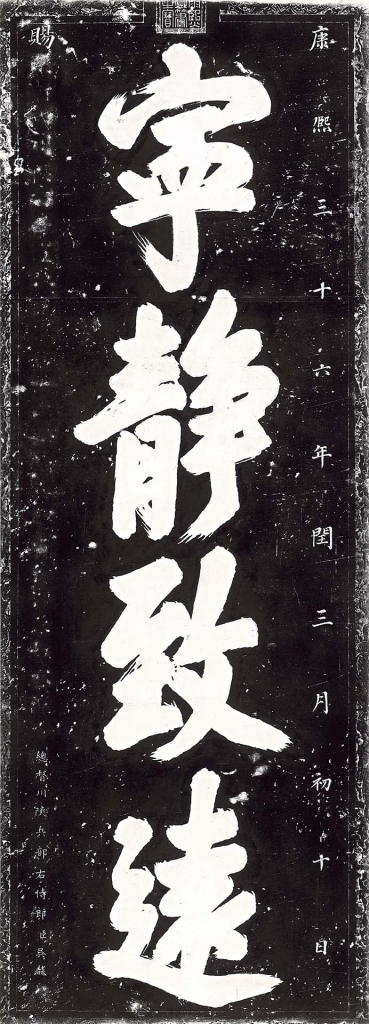 康熙三十六年閏三月初十日
寧靜致遠
賜
總督川陝兵部右侍郎臣吳赫